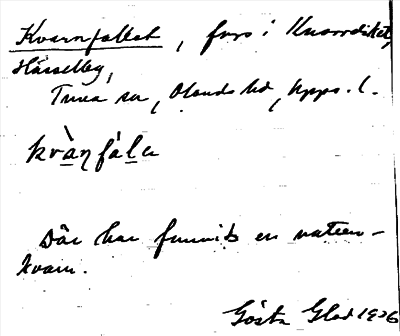 Kvarnfallet, fors i Knarrdiket,
Hässelby,
Tuna sn, Olands hd, Upps. l.
kvàηfála
Där har funnits en vatten-
kvarn.
Gösta Glad 1926